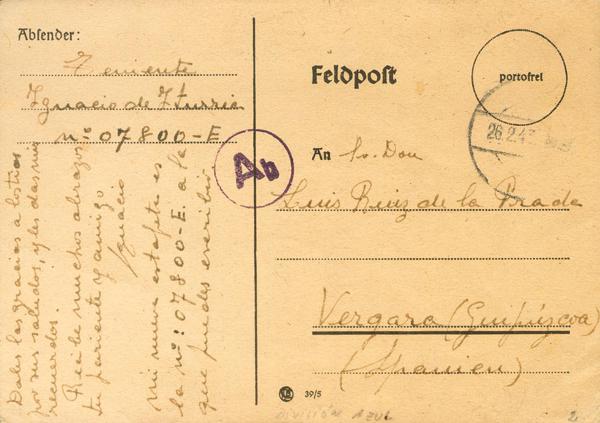 Absender:
Teniente
Ignacio de Iturria
nº 07800-E
Dales las gracias a los tios
por sus saludos, y les das mis
recuerdos.
Recibe muchos abrazos
tu pariente y amigo
Ignacio
Mi nueva estafeta es
la nº: 07800-E. a la
que puedes escribir
Ab
Feldpost
portofrei
26.2.4
An Sr. Don
Luis Ruiz de la Prada
Vergara (Guipúzcoa)
(Spanien)
39/5
DIVISIÓN AZUL
2